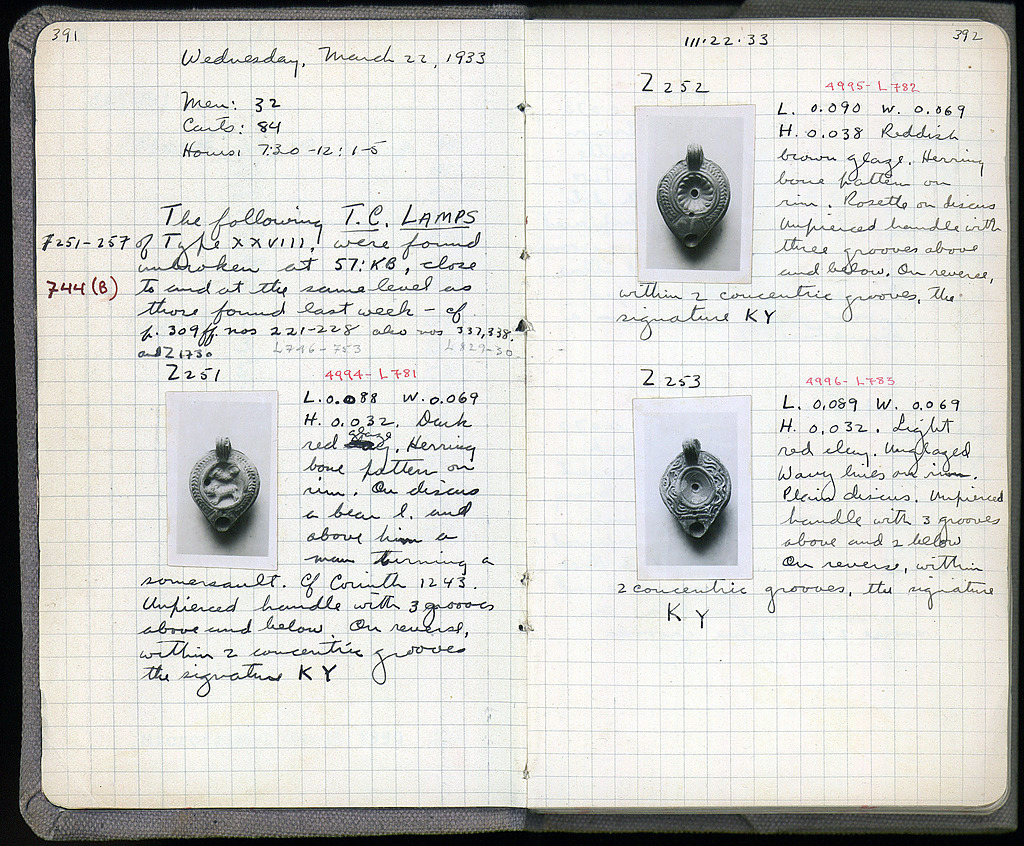 391
Wednesday, March 22, 1933
Men: 32
Carts: 84
Hours: 7:30-12: 1-5
The following T.C. LAMPS
Z251-257 of Type XXVIII, were found
unbroken at 57:KB, close
744(B) to and at the same level as
those found last week - cf
p. 309ff. nos 221-228 also nos 337,338.
and Z1730 L746-753 L829-30
Z 251 4994-L781
L. 0.088 W. 0.069
H. 0.032. Dark
red glaze. Herring
bone pattern on
rim. On discus
a bear l. and
above him a
man turning a
somersault. Cf Corinth 1243.
Unpierced handle with 3 grooves
above and below. On reverse,
within 2 concentric grooves
the signature KY
III·22·33 392
Z 252 4995-L782
L. 0.090 W. 0.069
H. 0.038 Reddish
brown glaze. Herring
bone pattern on
rim. Rosette on discus
Unpierced handle with
three grooves above
and below. On reverse,
within 2 concentric grooves, the
signature KY
Z 253 4996-L783
L. 0.089 W. 0.069
H. 0.032. Light
red clay. Unglazed
Wavy lines on rim.
Plain discus. Unpierced
handle with 3 grooves
above and 2 below
On reverse, within
2 concentric grooves, the signature
KY